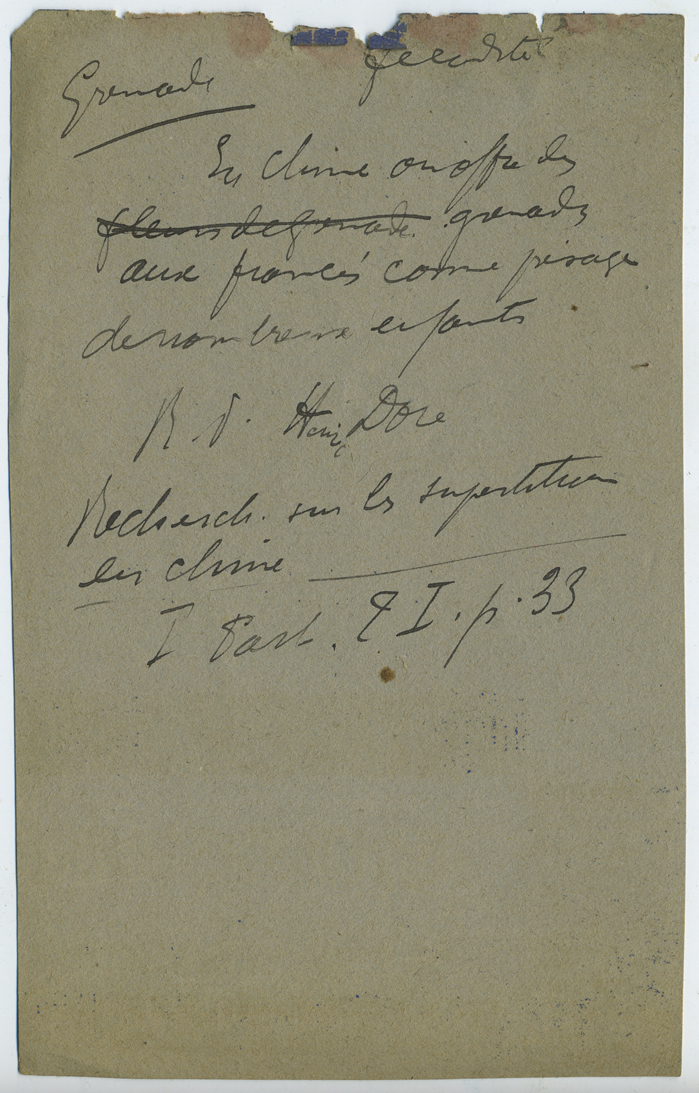 Grenade fecondité
En Chine on offre des
fleurs de grenade. grenades
aux francés comme présage
de nombreux enfants
R. P. Henri Doré
Recherch. sur les superstitions
en chine
I Part. T I. p. 33